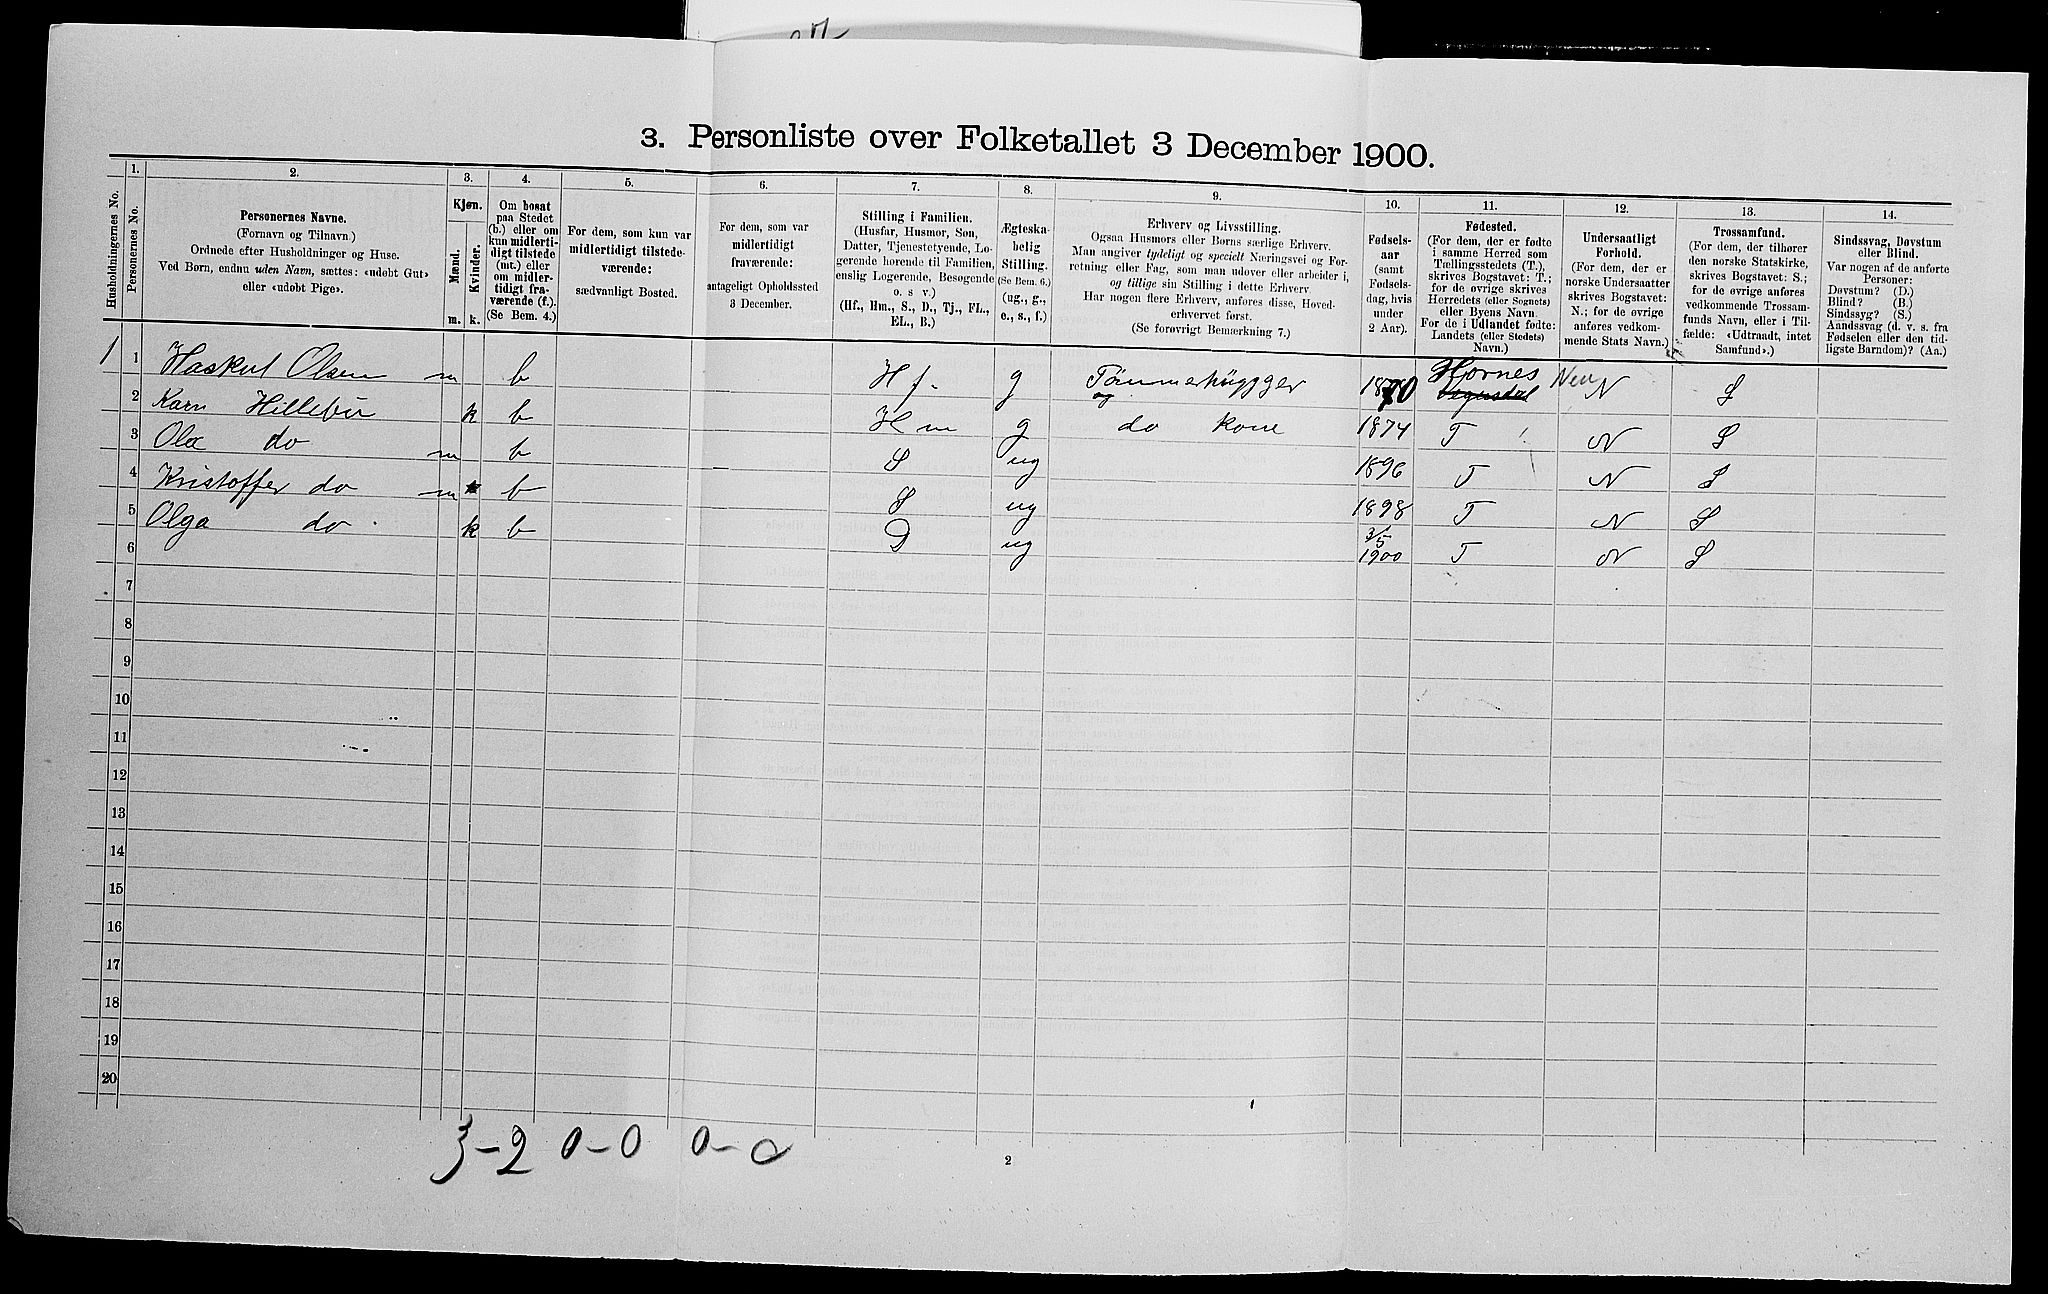 3. Personliste over Folketallet 3 December 1900.
Husholdningernes No.
1.
Personernes No.
2.
Personernes Navne.
(Fornavn og Tilnavn.)
Ordnede efter Husholdninger og Huse.
Ved Børn, endnu uden Navn, sættes: «udøbt Gut»
eller «udøbt Pige».
3.
Kjøn.
Mænd.
Kvinder.
m. k.
4.
Om bosat
paa Stedet
(b.) eller om
kun midlerti-
digt tilstede
(mt.) eller
om midler-
tidigt fra-
værende (f.).
(Se Bem. 4.)
5.
For dem, som kun var
midlertidigt tilstede-
værende:
sædvanligt Bosted.
6.
For dem, som var
midlertidigt
fraværende:
antageligt Opholdssted
3 December.
7.
Stilling i Familien.
(Husfar, Husmor, Søn,
Datter, Tjenestetyende, Lo-
gerende hørende til Familien,
enslig Logerende, Besøgende
o. s v.)
(Hf., Hm., S., D., Tj., FL.,
EL., B.)
8.
Ægteska-
belig
Stilling.
(Se Bem. 6.)
(ug., g.,
e., s., f.)
9.
Erhverv og Livsstilling.
Ogsaa Husmors eller Børns særlige Erhverv.
Man angiver tydeligt og specielt Næringsvei og For-
retning eller Fag, som man udøver eller arbeider i,
og tillige sin Stilling i dette Erhverv.
Har nogen flere Erhverv, anføres disse, Hoved-
erhvervet først.
(Se forøvrigt Bemærkning 7.)
10.
Fødsels-
aar
(samt
Fødsels-
dag, hvis
under
2 Aar).
11.
Fødested.
(For dem, der er fødte
i samme Herred som
Tællingsstedets (T.),
skrives Bogstavet: T.;
for de øvrige skrives
Herredets (eller Sognets)
eller Byens Navn.
For de i Udlandet fødte:
Landets (eller Stedets)
Navn.)
12.
Undersaatligt
Forhold.
(For dem, der er
norske Undersaatter
skrives Bogstavet:
N.; for de øvrige
anføres vedkom-
mende Stats Navn.)
13.
Trossamfund.
(For dem, der tilhører
den norske Statskirke,
skrives Bogstavet: S.;
for de øvrige anføres
vedkommende Trossam-
funds Navn, eller i Til-
fælde: «Udtraadt, intet
Samfund».)
14.
Sindssvag, Døvstum
eller Blind.
Var nogen af de anførte
Personer:
Døvstum? (D.)
Blind? (B.)
Sindssyg? (S.)
Aandssvag (d. v. s. fra
Fødselen eller den tid-
ligste Barndom)? (Aa.)
1 1 Haskul Olsen m b Hf. g Tømmerhugger 1870 Hornes N S
2 Karn Hillebor k b Hm g do kone 1874 T N S
3 Ola do m b S ug 1896 T N S
4 Kristoffer do m b S ug 1898 T N S
5 Olga do k b D ug 3/5 1900 T N S
6
7
8
9
10
11
12
13
14
15
16
17
18
19
20
3-2 0-0 0-0
2